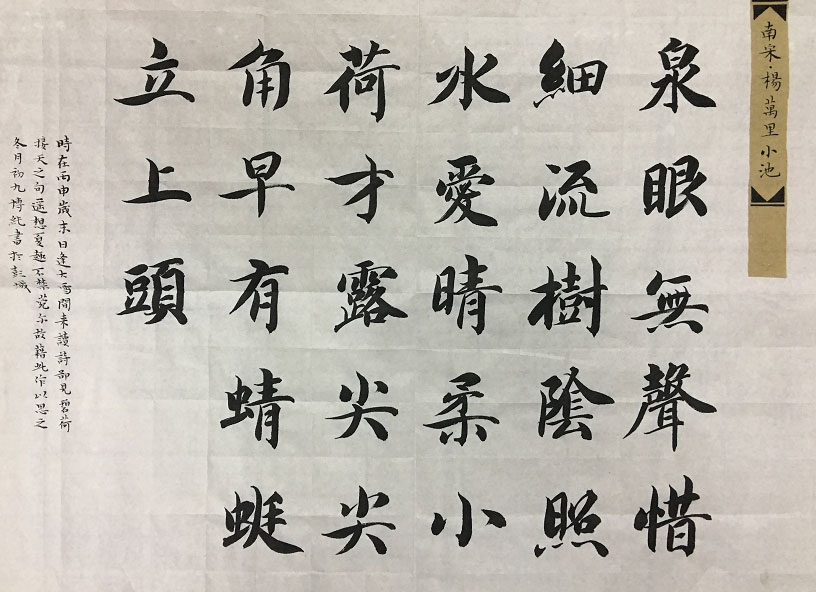 南宋·楊萬里小池
泉眼無聲惜
細流樹陰照
水愛晴柔小
荷才露尖尖
角早有蜻蜓
立上頭
時在丙申歲末日逢大雪閒來讀詩部見碧荷
接天之句遥想夏趣不禁莞尔故藉此作以思之
冬月初九博純書於彭城